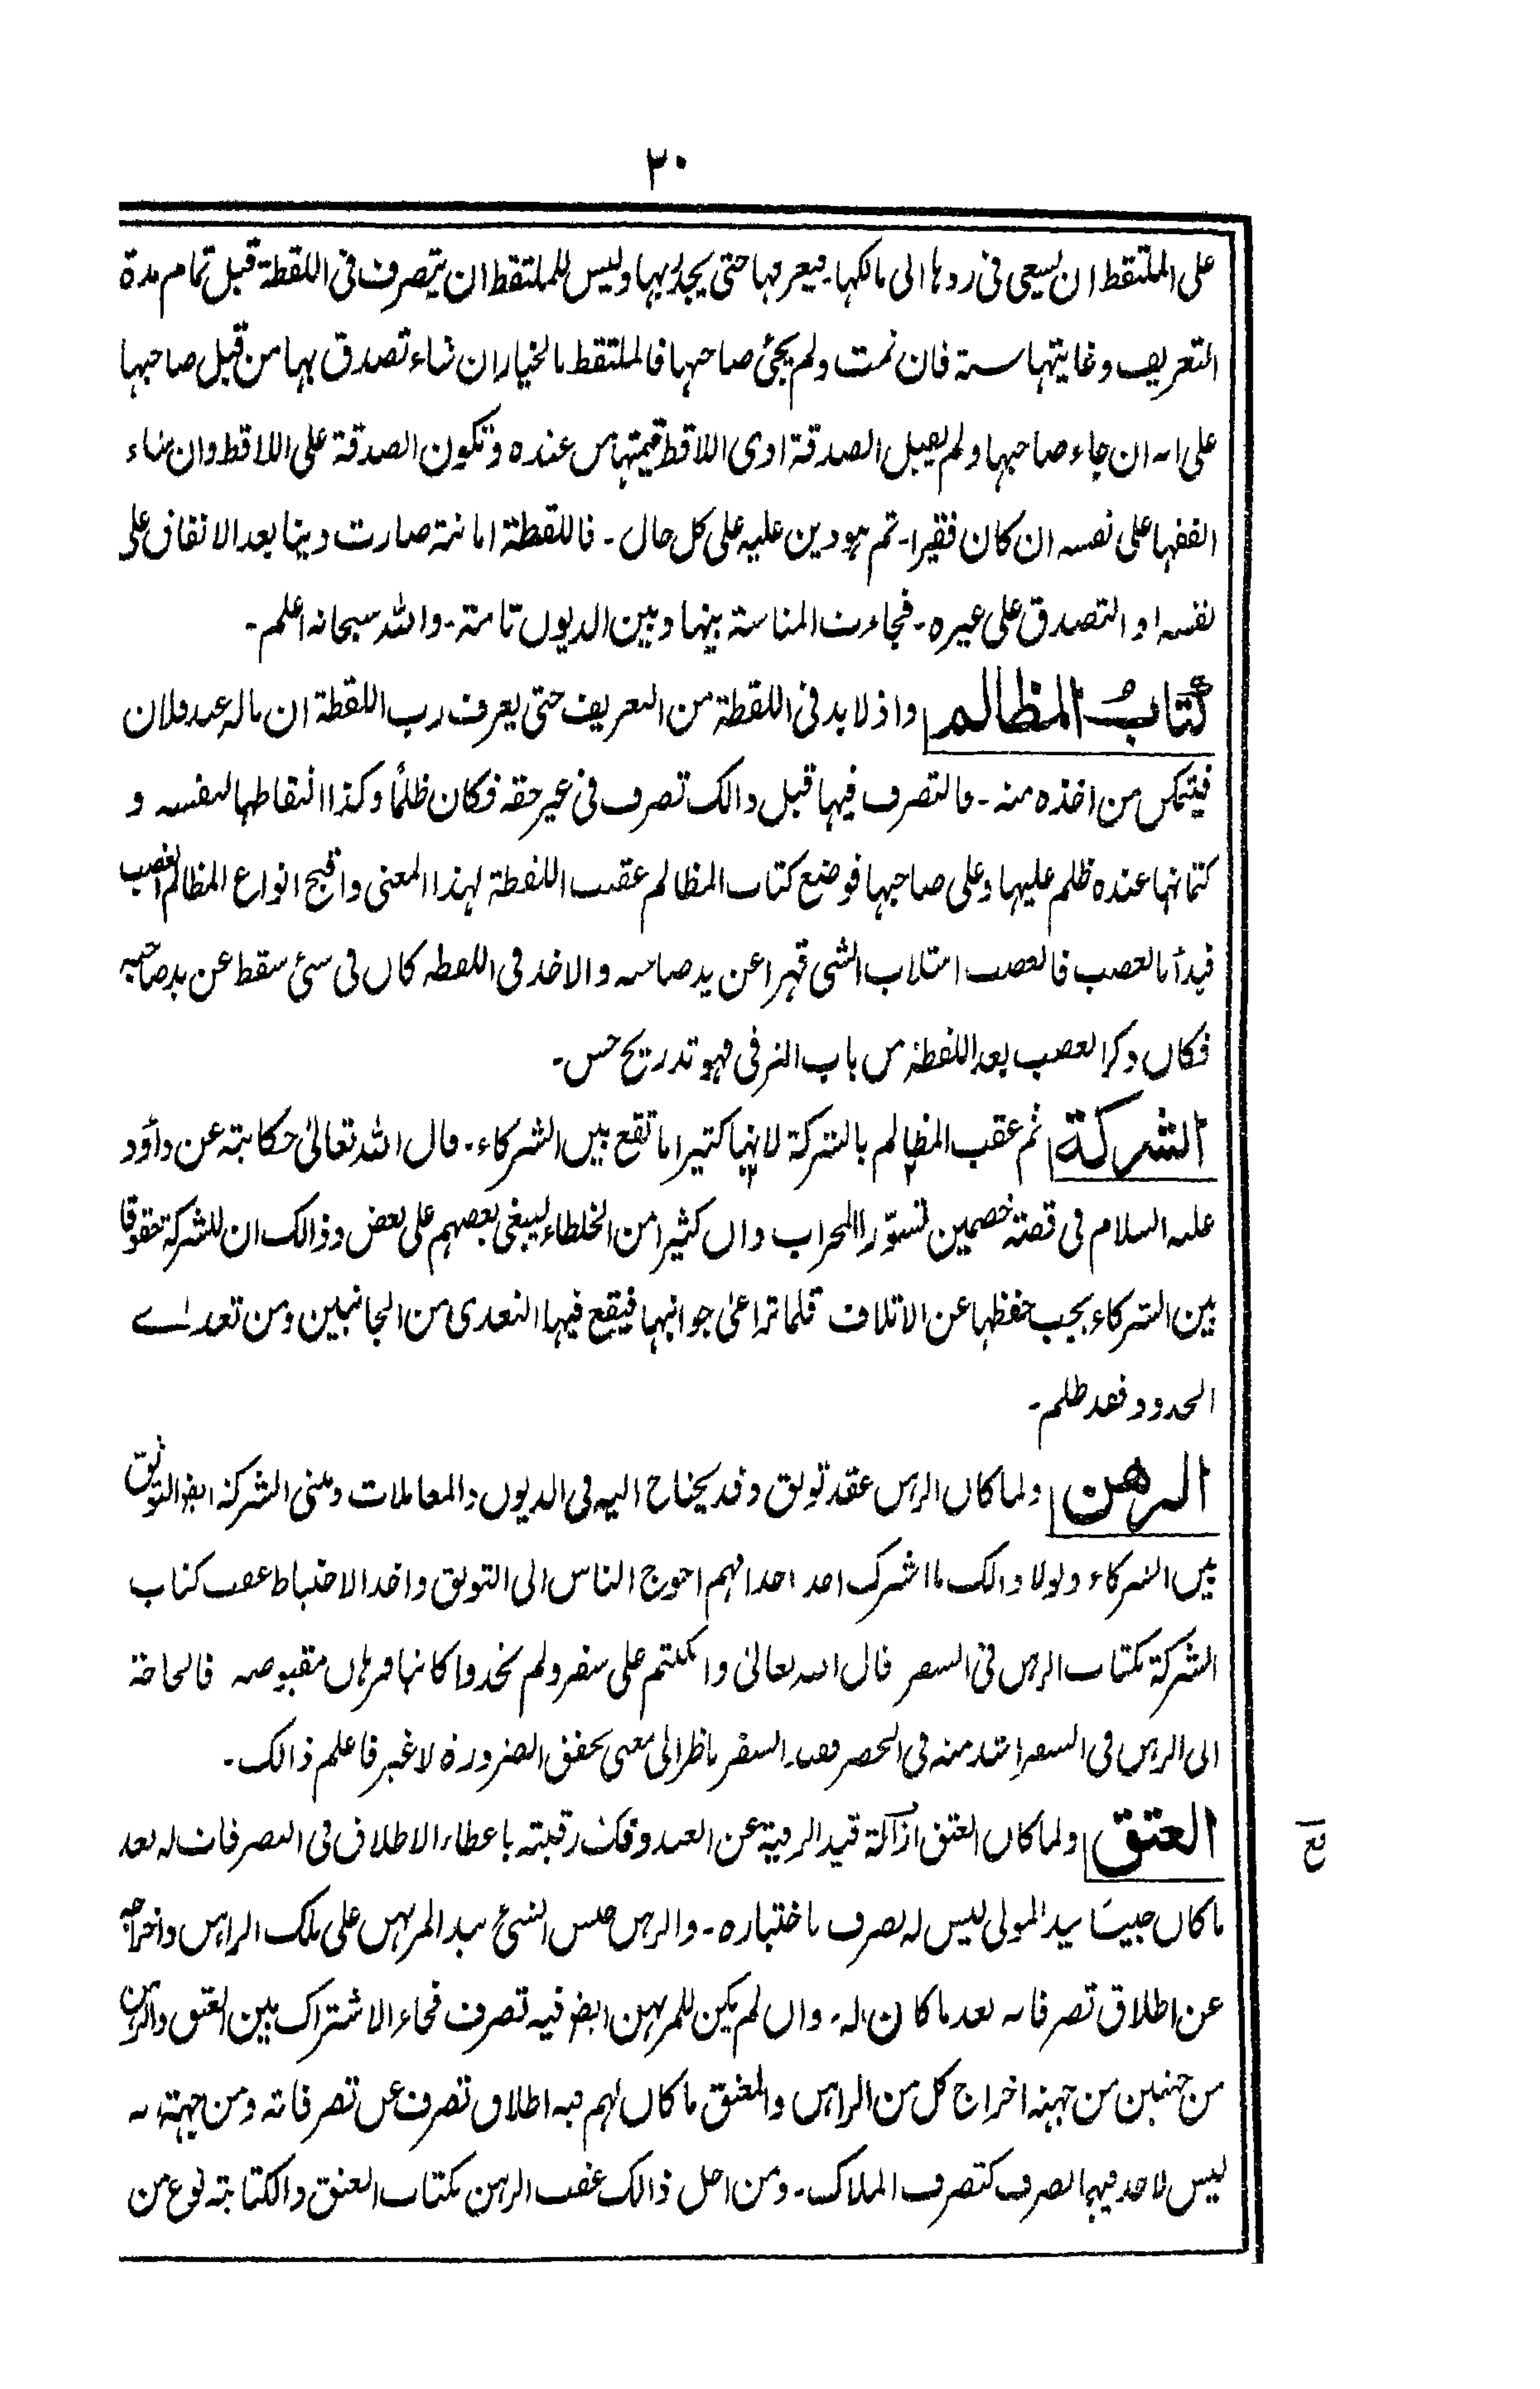 ۳۰
على الملتقط ان يسعى فى ردها الى مالكها۔ فيعرفها حتى يجد ربها وليس للملتقط ان يتصرف فى اللقطة قبل تمام مدة
التعريف وغايتها سنة فان تمت ولم يجئ صاحبها فالملتقط بالخيار ان شاء تصدق بها من قبل صاحبها
على انه ان جاء صاحبها ولم يقبل الصدقة ادى اللاقط قيمتها من عنده وتكون الصدقة على اللاقط وان شاء
انفقها على نفسه ان كان فقيرا۔ ثم هو دين عليه على كل حال۔ فاللقطة امانة صارت دينا بعد الانفاق على
نفسه او التصدق على غيره۔ فجاءت المناسبة بينها وبين الديون تامة۔ والله سبحانه اعلم۔
كتاب المظالم واذ لا بد فى اللقطة من التعريف حتى يعرف رب اللقطة ان ماله عند فلان
فيتمكن من اخذه منه۔ فالتصرف فيها قبل ذالك تصرف فى غير حقه فكان ظلمًا وكذا التقاطها لنفسه و
كتمانها عنده ظلم عليها وعلى صاحبها فوضع كتاب المظالم عقب اللقطة لهذا المعنى واقبح انواع المظالم الغصب
فبدأ بالغصب فالغصب استلاب الشى قهرا عن يد صاحبه والاخذ فى اللقطه كان فى شئ سقط عن يد صاحبه
فكان ذكر الغصب بعد اللقطة من باب الترقى فهو تدريج حسن۔
الشركة ثم عقب المظالم بالشركة لانها كثيرا ما تقع بين الشركاء۔ قال الله تعالىٰ حكايته عن داؤد
عليه السلام فى قصته خصمين تسوّرا المحراب وان كثيرا من الخلطاء ليبغى بعضهم على بعض وذالك ان للشركة حقوقا
بين الشركاء يجب حفظها عن الاتلاف قلما تراعىٰ جوانبها فيقع فيها التعدى من الجانبين ومن تعدٰے
الحدود فقد ظلم۔
الرهن ولما كان الرهن عقد توثق وقد يحتاج اليه فى الديون والمعاملات ومبنى الشركة ايضا التوثق
بين الشركاء ولولا ذالك ما اشرك احد احدا فهم احوج الناس الى التوثق واخذ الاحتياط عقب كتاب
الشركة بكتاب الرهن فى السفر قال الله تعالىٰ وان كنتم على سفر ولم تجدوا كاتبا فرهان مقبوضه فالحاجة
الى الرهن فى السفر اشد منه فى الحضر فقيد السفر ناظر الى معنى تحقق الضرورة لا غير فاعلم ذالك۔
العتق ولما كان العتق ازالة قيد الرقية عن العبد وفك رقبته باعطاء الاطلاق فى التصرفات له بعد
ما كان حبيسًا بيد المولى ليس له تصرف باختياره۔ والرهن حبس الشئ بيد المرتهن على ملك الراهن واخراجه
عن اطلاق تصرفاته بعد ما كان له۔ وان لم يكن للمرتهن ايضا فيه تصرف فجاء الاشتراك بين العتق والرهن
من جهتين من جهته اخراج كل من الراهن والمعتق ما كان لهم فيه اطلاق تصرف عن تصرفاته ومن جهته انه
ليس لاحد فيهما تصرف كتصرف الملاك۔ ومن اجل ذالك عقب الرهن بكتاب العتق والكتابته نوع من